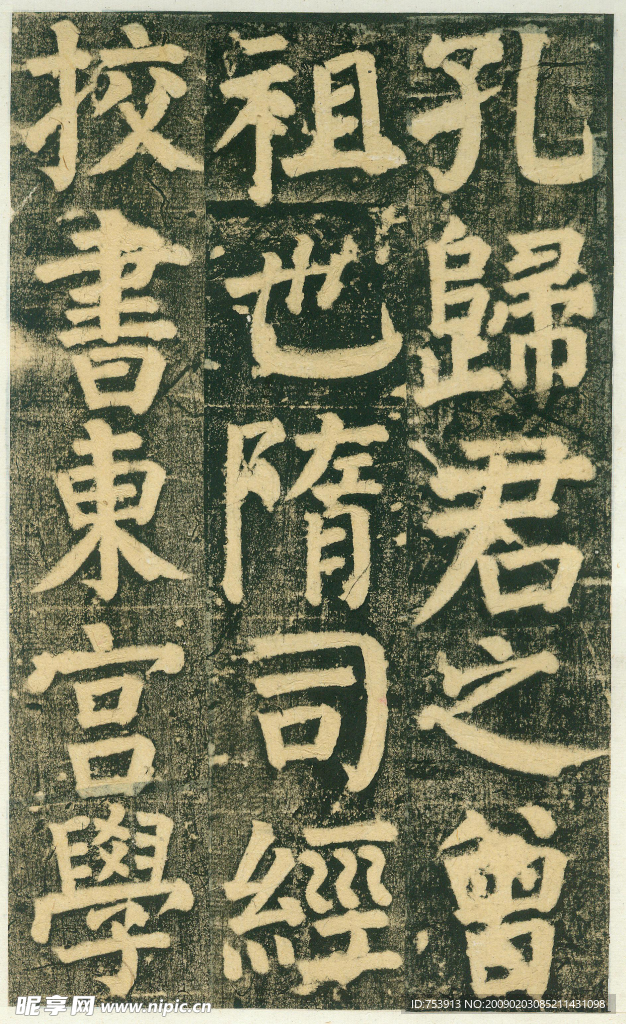 孔歸君之曾
祖世隋司經
挍書東宮學
昵享网 www.nipic.cn
ID:753913 NO:20090203085211431098